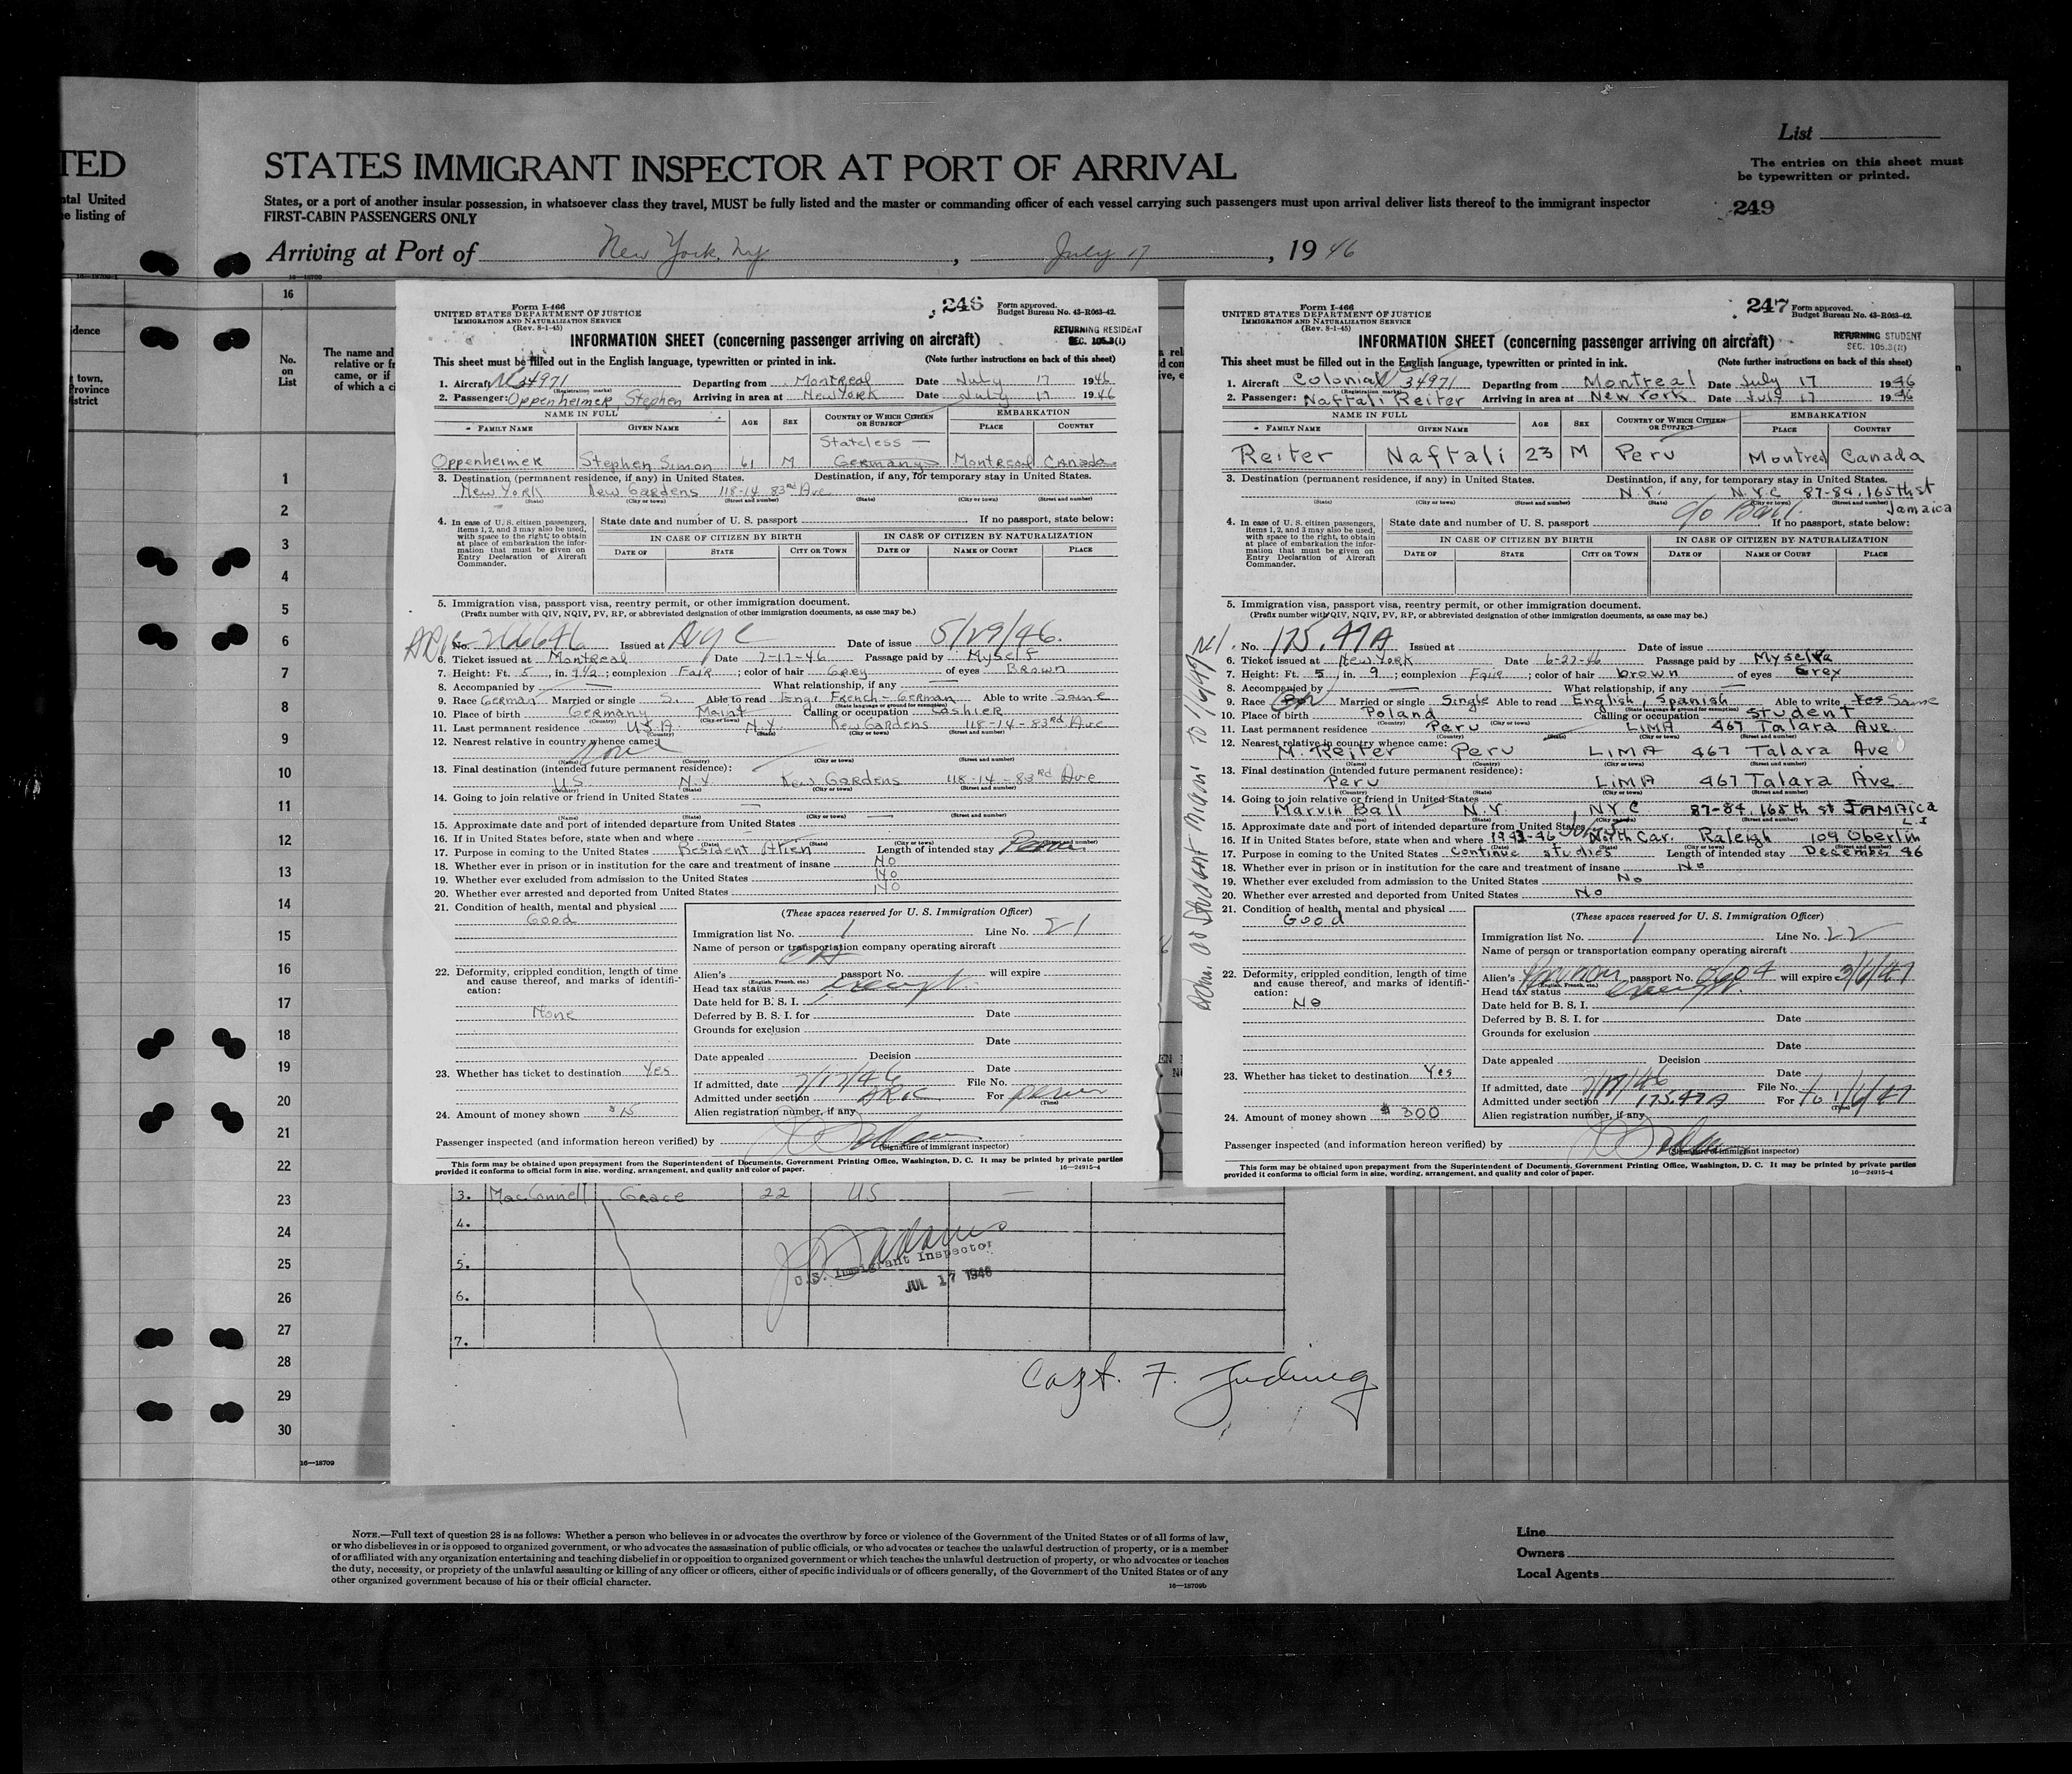 TED
ntal United
e listing of
List
STATES IMMIGRANT INSPECTOR AT PORT OF ARRIVAL
The entries on this sheet must
be typewritten or printed.
States, or a port of another insular possession, in whatsoever class they travel, MUST be fully listed and the master or commanding officer of each vessel carrying such passengers must upon arrival deliver lists thereof to the immigrant inspector
FIRST-CABIN PASSENGERS ONLY
249
Arriving at Port of New York, Ny, July 17, 1946
16—18709
16
No.
on
List
The name and
relative or fr
came, or if
of which a ci
idence
town,
Province
istrict
1
2
3
4
5
6
7
8
9
10
11
12
13
14
15
16
17
18
19
20
21
22
23
24
25
26
27
28
29
30
16—18709
Form I-466
UNITED STATES DEPARTMENT OF JUSTICE
IMMIGRATION AND NATURALIZATION SERVICE
(Rev. 8-1-45)
246
Form approved.
Budget Bureau No. 43-R063-42.
RETURNING RESIDENT
SEC. 105.3(1)
INFORMATION SHEET (concerning passenger arriving on aircraft)
This sheet must be filled out in the English language, typewritten or printed in ink. (Note further instructions on back of this sheet)
1. Aircraft NC34971 Departing from Montreal Date July 17 1946
2. Passenger: Oppenheimer Stephen Arriving in area at New York Date July 17 1946
NAME IN FULL AGE SEX COUNTRY OF WHICH CITIZEN OR SUBJECT EMBARKATION
FAMILY NAME GIVEN NAME PLACE COUNTRY
Stateless —
Oppenheimer Stephen Simon 61 M Germany Montreal Canada
3. Destination (permanent residence, if any) in United States. Destination, if any, for temporary stay in United States.
New York Kew Gardens 118-14 83rd Ave
(State) (City or town) (Street and number) (State) (City or town) (Street and number)
4. In case of U. S. citizen passengers, items 1, 2, and 3 may also be used, with space to the right, to obtain at place of embarkation the information that must be given on Entry Declaration of Aircraft Commander.
State date and number of U. S. passport If no passport, state below:
IN CASE OF CITIZEN BY BIRTH IN CASE OF CITIZEN BY NATURALIZATION
DATE OF STATE CITY OR TOWN DATE OF NAME OF COURT PLACE
5. Immigration visa, passport visa, reentry permit, or other immigration document.
(Prefix number with QIV, NQIV, PV, RP, or abbreviated designation of other immigration documents, as case may be.)
No. 26646 Issued at NYC Date of issue 5/29/46.
6. Ticket issued at Montreal Date 7-17-46 Passage paid by Myself
7. Height: Ft. 5, in. 7 1/2; complexion Fair; color of hair Grey of eyes Brown
8. Accompanied by — What relationship, if any —
9. Race German Married or single S. Able to read Engl. French-German Able to write Same
10. Place of birth Germany Mainz Calling or occupation Cashier
11. Last permanent residence U.S.A. N.Y. Kew Gardens 118-14-83rd Ave
12. Nearest relative in country whence came: None
13. Final destination (intended future permanent residence):
U.S. N.Y. Kew Gardens 118-14-83rd Ave
14. Going to join relative or friend in United States —
15. Approximate date and port of intended departure from United States —
16. If in United States before, state when and where
17. Purpose in coming to the United States Resident Alien Length of intended stay Perm.
18. Whether ever in prison or in institution for the care and treatment of insane No
19. Whether ever excluded from admission to the United States No
20. Whether ever arrested and deported from United States No
21. Condition of health, mental and physical
Good
22. Deformity, crippled condition, length of time and cause thereof, and marks of identification:
None
23. Whether has ticket to destination Yes
24. Amount of money shown $15
(These spaces reserved for U. S. Immigration Officer)
Immigration list No. 1 Line No. 21
Name of person or transportation company operating aircraft
Alien's passport No. will expire
(English, French, etc.)
Head tax status exempt
Date held for B. S. I.
Deferred by B. S. I. for Date
Grounds for exclusion
Date
Date appealed Decision
Date
If admitted, date 7/17/46 File No.
Admitted under section ARIC For perm
(Time)
Alien registration number, if any
Passenger inspected (and information hereon verified) by
(Signature of immigrant inspector)
This form may be obtained upon prepayment from the Superintendent of Documents, Government Printing Office, Washington, D. C. It may be printed by private parties
provided it conforms to official form in size, wording, arrangement, and quality and color of paper. 16—24915-4
Form I-466
UNITED STATES DEPARTMENT OF JUSTICE
IMMIGRATION AND NATURALIZATION SERVICE
(Rev. 8-1-45)
247
Form approved.
Budget Bureau No. 43-R063-42.
RETURNING STUDENT
INFORMATION SHEET (concerning passenger arriving on aircraft)
This sheet must be filled out in the English language, typewritten or printed in ink. (Note further instructions on back of this sheet)
1. Aircraft Colonial 34971 Departing from Montreal Date July 17 1946
2. Passenger: Naftali Reiter Arriving in area at New York Date July 17 1946
NAME IN FULL AGE SEX COUNTRY OF WHICH CITIZEN OR SUBJECT EMBARKATION
FAMILY NAME GIVEN NAME PLACE COUNTRY
Reiter Naftali 23 M Peru Montreal Canada
3. Destination (permanent residence, if any) in United States. Destination, if any, for temporary stay in United States.
N.Y. N.Y.C 87-84, 165th st
Jamaica
c/o Ball.
4. In case of U. S. citizen passengers, items 1, 2, and 3 may also be used, with space to the right, to obtain at place of embarkation the information that must be given on Entry Declaration of Aircraft Commander.
State date and number of U. S. passport If no passport, state below:
IN CASE OF CITIZEN BY BIRTH IN CASE OF CITIZEN BY NATURALIZATION
DATE OF STATE CITY OR TOWN DATE OF NAME OF COURT PLACE
5. Immigration visa, passport visa, reentry permit, or other immigration document.
(Prefix number with QIV, NQIV, PV, RP, or abbreviated designation of other immigration documents, as case may be.)
No. 175.47A Issued at Date of issue
6. Ticket issued at New York Date 6-27-46 Passage paid by Myself
7. Height: Ft. 5, in. 9; complexion Fair; color of hair brown of eyes Grey
8. Accompanied by — What relationship, if any —
9. Race Married or single Single Able to read English, Spanish Able to write Yes Same
10. Place of birth Poland Calling or occupation student
11. Last permanent residence Peru LIMA 467 Talara Ave.
12. Nearest relative in country whence came:
M. Reiter Peru LIMA 467 Talara Ave
13. Final destination (intended future permanent residence):
Peru LIMA 467 Talara Ave.
14. Going to join relative or friend in United States
Marvin Ball N.Y. NYC 87-84, 165th st JAMAica
L.I
15. Approximate date and port of intended departure from United States
16. If in United States before, state when and where 1943-46 North Car. Raleigh 109 Oberlin
17. Purpose in coming to the United States Continue studies Length of intended stay December 46
18. Whether ever in prison or in institution for the care and treatment of insane No
19. Whether ever excluded from admission to the United States No
20. Whether ever arrested and deported from United States No
21. Condition of health, mental and physical
Good
22. Deformity, crippled condition, length of time and cause thereof, and marks of identification:
No
23. Whether has ticket to destination Yes
24. Amount of money shown $300
(These spaces reserved for U. S. Immigration Officer)
Immigration list No. 1 Line No. 22
Name of person or transportation company operating aircraft
Alien's Peruvian passport No. 0604 will expire 3/6/47
(English, French, etc.)
Head tax status exempt
Date held for B. S. I.
Deferred by B. S. I. for Date
Grounds for exclusion
Date
Date appealed Decision
Date
If admitted, date 7/17/46 File No.
Admitted under section 175.47A For to 1/6/47
(Time)
Alien registration number, if any
Passenger inspected (and information hereon verified) by
(Signature of immigrant inspector)
This form may be obtained upon prepayment from the Superintendent of Documents, Government Printing Office, Washington, D. C. It may be printed by private parties
provided it conforms to official form in size, wording, arrangement, and quality and color of paper. 16—24915-4
Adm. as Student to 1/6/47
3. MacConnell Grace 22 US —
4.
5.
6.
7.
J Adams
U.S. Immigrant Inspector
JUL 17 1946
Capt. F.
NOTE.—Full text of question 28 is as follows: Whether a person who believes in or advocates the overthrow by force or violence of the Government of the United States or of all forms of law,
or who disbelieves in or is opposed to organized government, or who advocates the assassination of public officials, or who advocates or teaches the unlawful destruction of property, or is a member
of or affiliated with any organization entertaining and teaching disbelief in or opposition to organized government or which teaches the unlawful destruction of property, or who advocates or teaches
the duty, necessity, or propriety of the unlawful assaulting or killing of any officer or officers, either of specific individuals or of officers generally, of the Government of the United States or of any
other organized government because of his or their official character.
16—18709b
Line
Owners
Local Agents